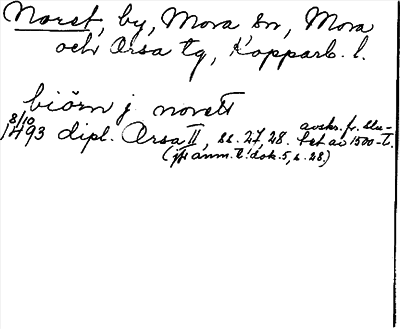 Noret, by, Mora sn, Mora
och Orsa tg, Kopparb. l.
biörn j norett
8/10 1493 dipl. Orsa II, ss. 27, 28. avskr. fr. slu-
tet av 1500-t.
(jfr anm. t. dok. 5, s. 28.)